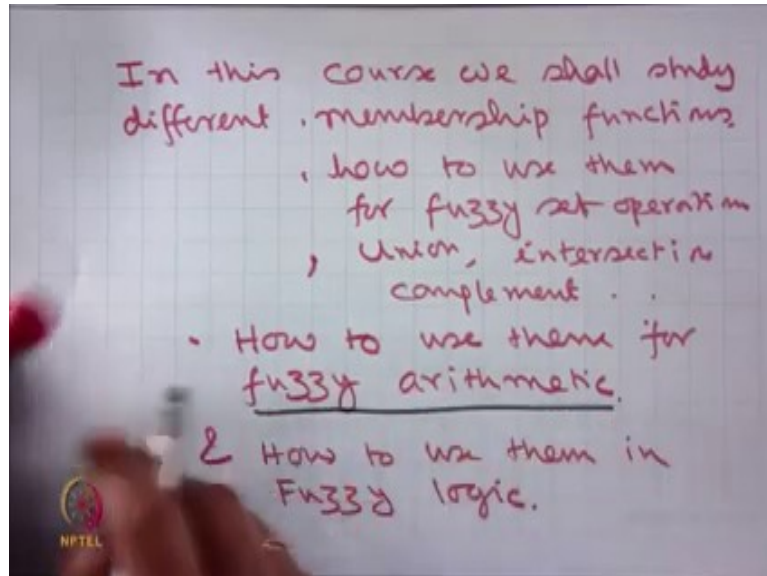 In this course we shall study
different . membership functions.
. how to use them
for fuzzy set operation
, Union, intersection
complement . .
. How to use them for
fuzzy arithmetic.
& How to use them in
Fuzzy logic.
NPTEL